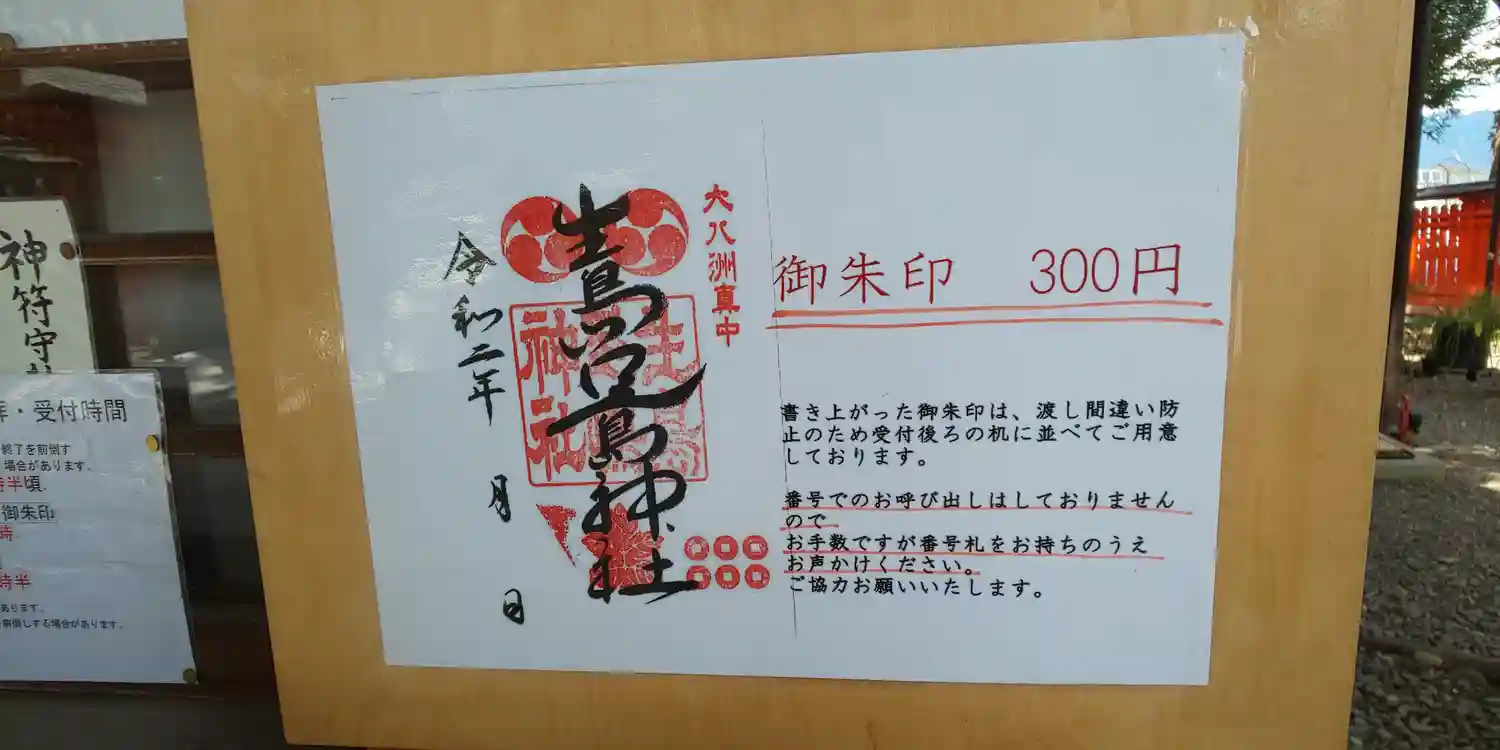 神符守
・受付時間
終了を前倒す
場合があります。
時半頃
御朱印
時
時半
あります。
前倒しする場合があります。
大八洲真中
生島足島神社
生島足島神社
令和二年 月 日
御朱印 300円
書き上がった御朱印は、渡し間違い防
止のため受付後ろの机に並べてご用意
しております。
番号でのお呼び出しはしておりません
ので
お手数ですが番号札をお持ちのうえ
お声かけください。
ご協力お願いいたします。